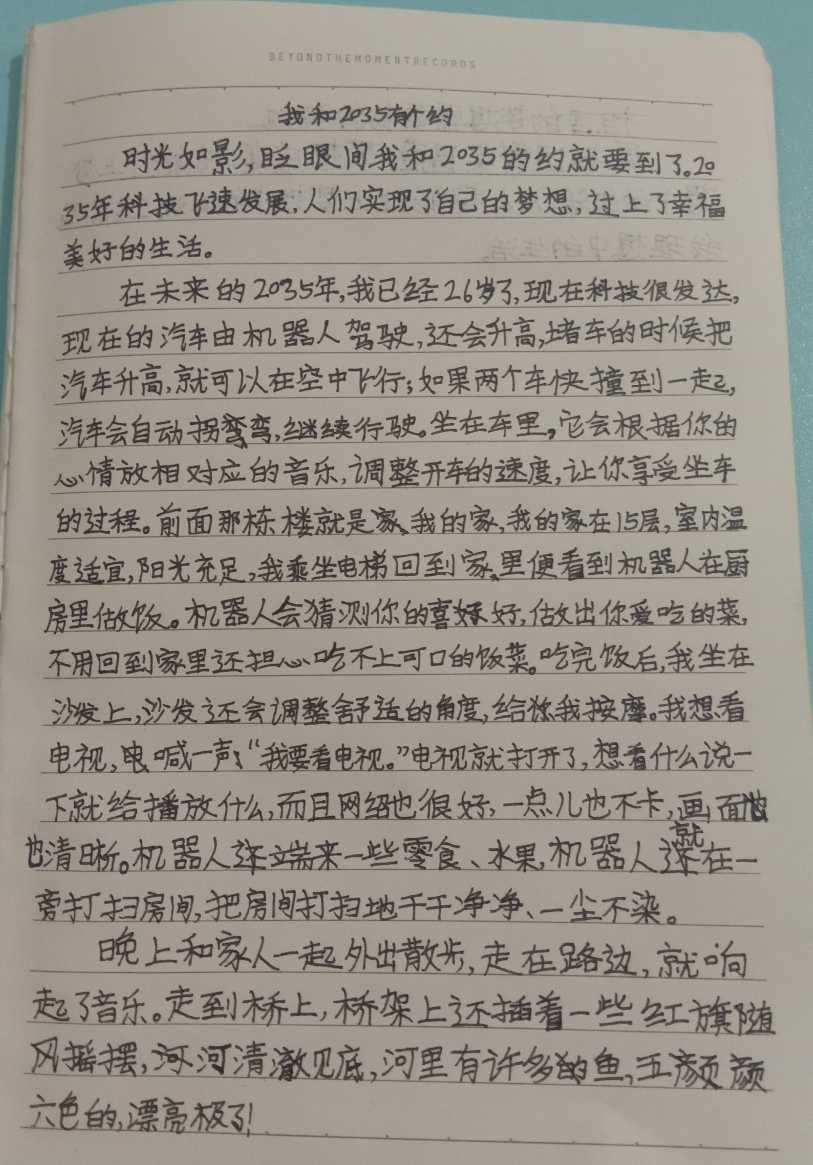 BEYONDTHEMOMENTRECORDS
我和2035有个约
时光如影,眨眼间我和2035的约就要到了。20
35年科技飞速发展,人们实现了自己的梦想,过上了幸福
美好的生活。
在未来的2035年,我已经26岁了,现在科技很发达,
现在的汽车由机器人驾驶,还会升高,堵车的时候把
汽车升高,就可以在空中飞行;如果两个车快撞到一起,
汽车会自动拐弯,继续行驶。坐在车里,它会根据你的
心情放相对应的音乐,调整开车的速度,让你享受坐车
的过程。前面那栋楼就是我的家,我的家在15层,室内温
度适宜,阳光充足,我乘坐电梯回到家里便看到机器人在厨
房里做饭。机器人会猜测你的喜好,做出你爱吃的菜,
不用回到家里还担心吃不上可口的饭菜。吃完饭后,我坐在
沙发上,沙发还会调整舒适的角度,给我按摩。我想看
电视,喊一声:“我要看电视。”电视就打开了,想看什么说一
下就给播放什么,而且网络也很好,一点儿也不卡,画面
也清晰。机器人还端来一些零食、水果,机器人就在一
旁打扫房间,把房间打扫地干干净净、一尘不染。
晚上和家人一起外出散步,走在路边,就响
起了音乐。走到桥上,桥架上还插着一些红旗随
风摇摆,河清澈见底,河里有许多的鱼,五颜
六色的,漂亮极了!